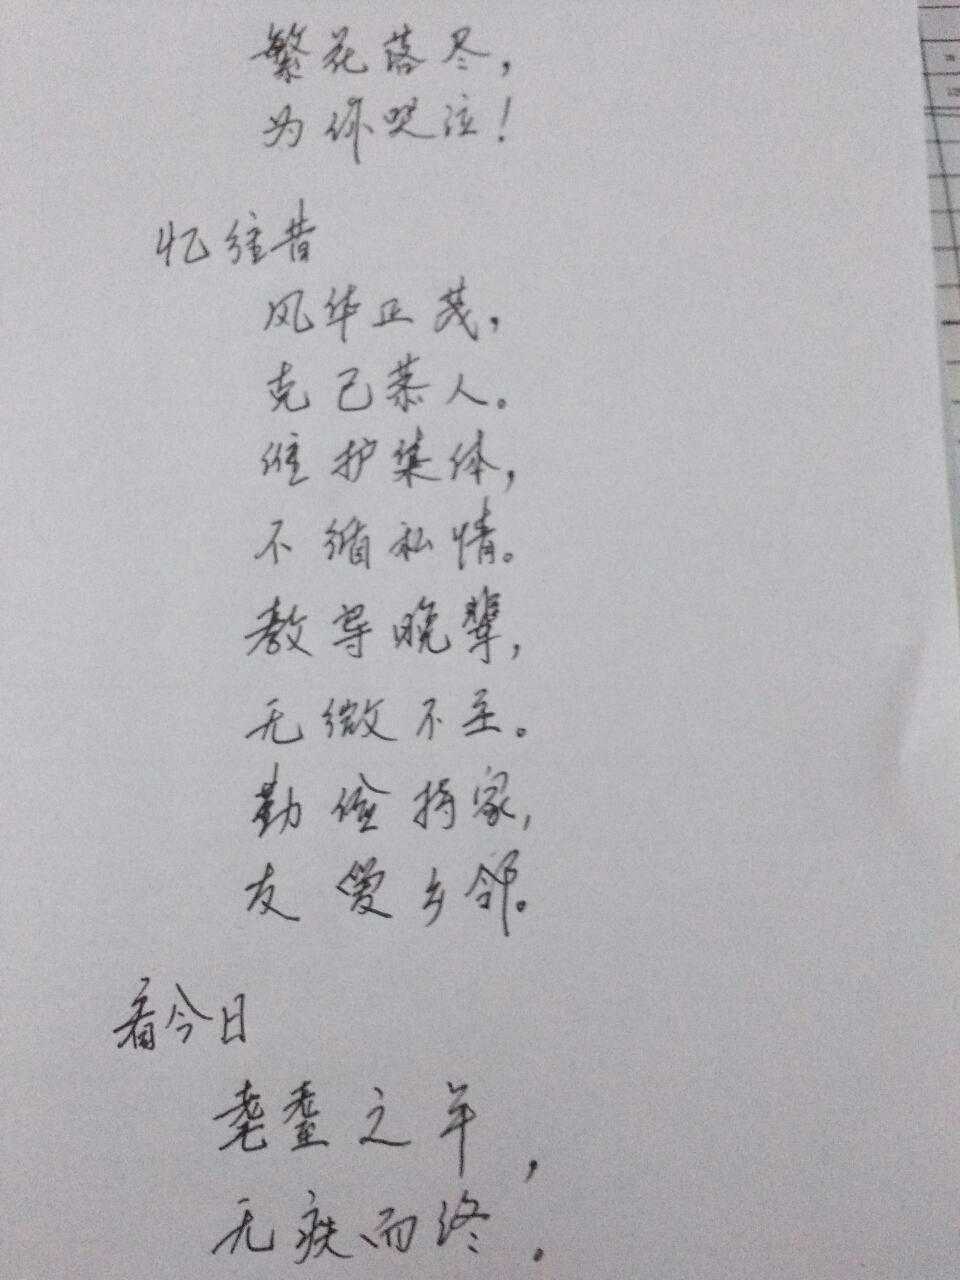 繁花落尽，
为你哭泣！
忆往昔
风华正茂，
克己恭人。
维护集体，
不循私情。
教导晚辈，
无微不至。
勤俭持家，
友爱乡邻。
看今日
耄耋之年，
无疾而终。